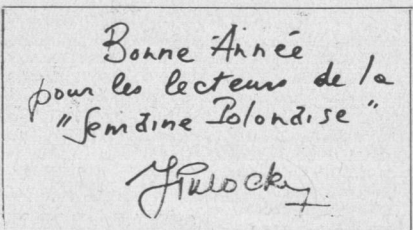 Bonne Année
pour les lecteurs de la
"Semaine Polonaise"